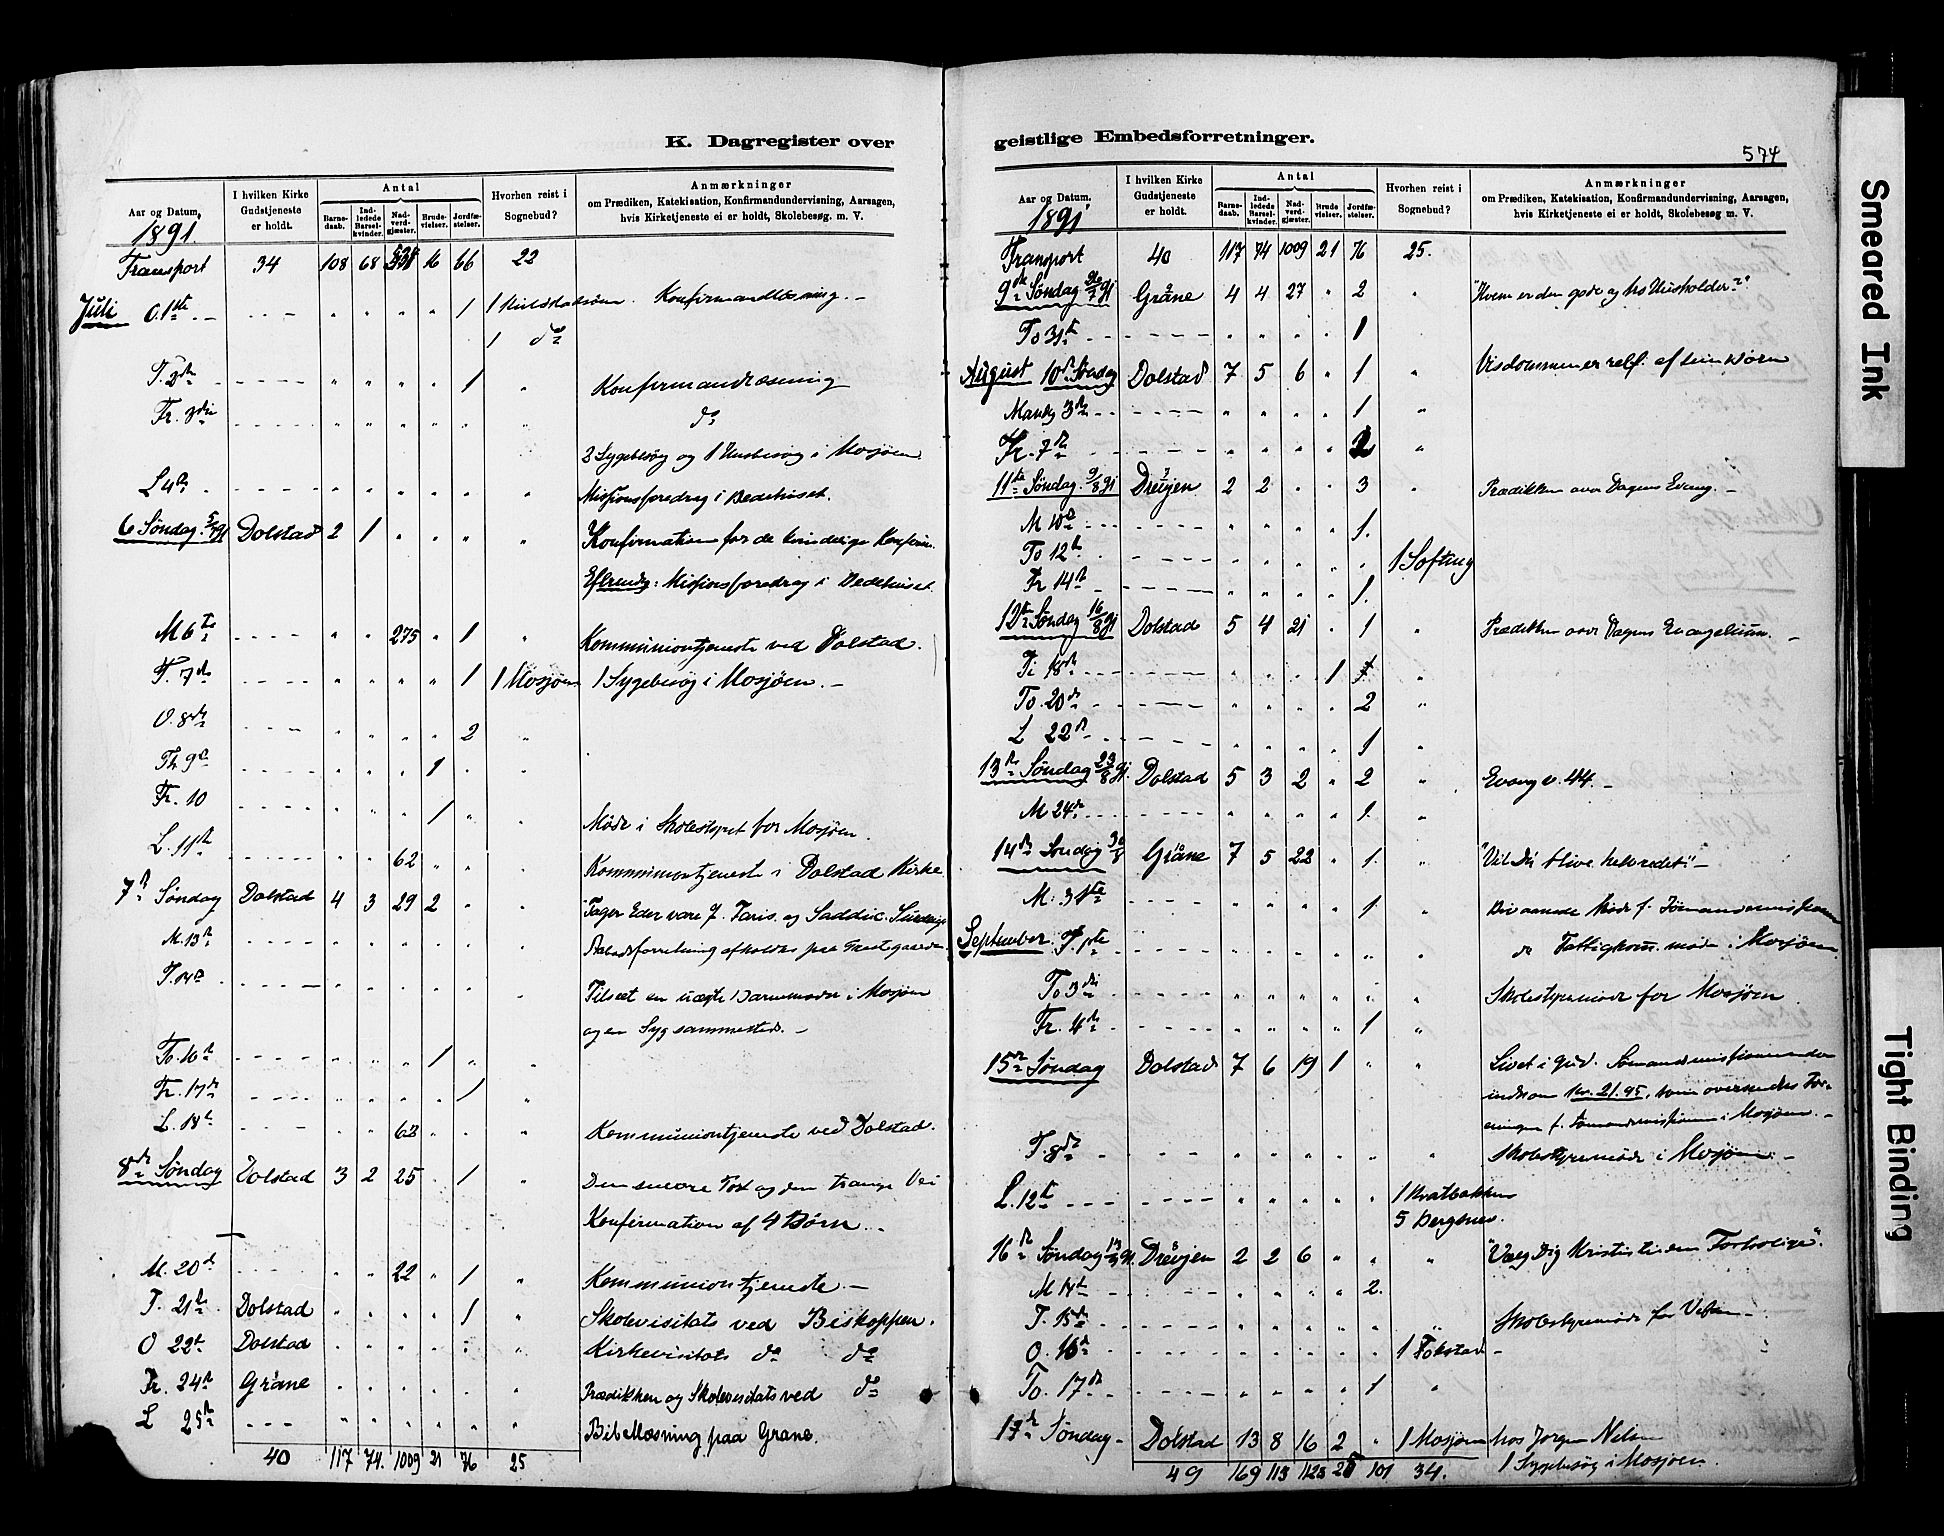 K. Dagregister over
Aar og Datum,
1891.
I hvilken Kirke Gudstjeneste er holdt.
Antal
Barne-daab.
Ind-ledede Barsel-kvinder.
Nad-verd-gjæster.
Brude-vielser.
Jordfæ-stelser.
Hvorhen reist i Sognebud?
Anmærkninger
om Prædiken, Katekisation, Konfirmandundervisning, Aarsagen,
hvis Kirketjeneste ei er holdt, Skolebesøg m. V.
Transport 34 108 68 16 66 22
Juli O. 1ste 1 1 Konfirmandlæsning.
1 do
T. 2den 1 Konfirmandlæsning
Fr. 3die do
Sygebesøg og 1 Husbesøg i Mosjøen
L 4de Missionsforedrag i Bedehuset.
6 Søndag 5/7 91 Dolstad 2 1 Konfirmation for de kvindelige Konfirm.
Eftermdg: Missionsforedrag i Bedehuset.
M 6te 275 1 Kommuniontjeneste ved Dolstad.
T. 7de 1 1 Mosjøen 1 Sygebesøg i Mosjøen.
O. 8de 2
Th 9de 1
Fr. 10 1 Møde i Skolestyret for Mosjøen.
L. 11te 62 Kommuniontjeneste i Dolstad Kirke
7de Søndag Dolstad 4 3 29 2 Tager Eder vare f. Faris. og Saddic. Surdeig
M. 13de afholdes paa
T. 14de Tilseet en uægte Barnemoder i Mosjøen
og en Syg sammesteds.
To. 16de 1
Fr. 17de 1
L. 18de 62 Kommuniontjeneste ved Dolstad.
8de Søndag Dolstad 3 2 25 1 Den snevre Port og den trange Vei
Konfirmation af 4 Børn.
M. 20de 22 1 Kommuniontjeneste
T. 21de Dolstad 1 Skolevisitats ved Biskoppen.
O 22de Dolstad Kirkevisitats do do
Fr. 24de Grane Prædikken og Skolevisitats ved do
L 25de Bibellæsning paa Grane.
40 117 74. 1009 21 76 25
geistlige Embedsforretninger.
574
Aar og Datum.
1891
I hvilken Kirke Gudstjeneste er holdt.
Antal
Barne-daab.
Ind-ledede Barsel-kvinder.
Nad-verd-gjæster.
Brude-vielser.
Jordfæ-stelser.
Hvorhen reist i Sognebud?
Anmærkninger
om Prædiken, Katekisation, Konfirmandundervisning, Aarsagen,
hvis Kirketjeneste ei er holdt, Skolebesøg m. V.
Transport 40 117 74 1009 21 76 25.
9de Søndag 26/7 91 Grane 4 4 27 2 "Hvem er den gode og tro Husholder?"
To 31te 1
August 10de Søndag Dolstad 7 5 6 1 Visdommen er retf. af sine Børn
Mandg 3de 1
Fr. 7de 2
11te Søndag 9/8 91 Drevjen 2 2 3 Prædikken over Dagens Evang.
M 10de 1.
To 12te 1 Softing
Fr 14de 1.
12te Søndag 16/8 91 Dolstad 5 4 21 1 Prædikken over Dagens Evangelium.
Ti 18de 1
To. 20de 2
L 22de 1
13de Søndag 23/8 91. Dolstad 5 3 2 2 Evang v. 44.
M 24de 1.
14de Søndag 30/8 Grane 7 5 22 1. "Vil Du blive helbredet"
M. 31te 1 Møde f. Sømandsmissionen
September T. 1ste do Fattigkom. møde i Mosjøen
To 3die Skolestyremøde for Mosjøen
Fr. 4de 1
15de Søndag Dolstad 7 6 19 1 Livet i Gud. Sømandsmissionen
indkom Kr. 21.95, som oversendes For-
eningen f. Sømandsmissionen i Mosjøen.
T. 8de Skolestyremøde i Mosjøen.
L. 12te 1 Kvalbakken
5 Bergsnes.
16de Søndag 13/9 91. Drevjen 2 2 6 "Vælg Dig Kristus til den Fortrolige".
M 14de 2.
T. 15de Skolestyremøde for Vefsn
O. 16de 1 Fokstad
To. 17de 1
17de Søndag Dolstad 13 8 16 2 1 Mosjøen hos Jørgen Nilsen
1 Sygebesøg i Mosjøen.
49 169 113 1123 25 101 34.
Smeared Ink
Tight Binding